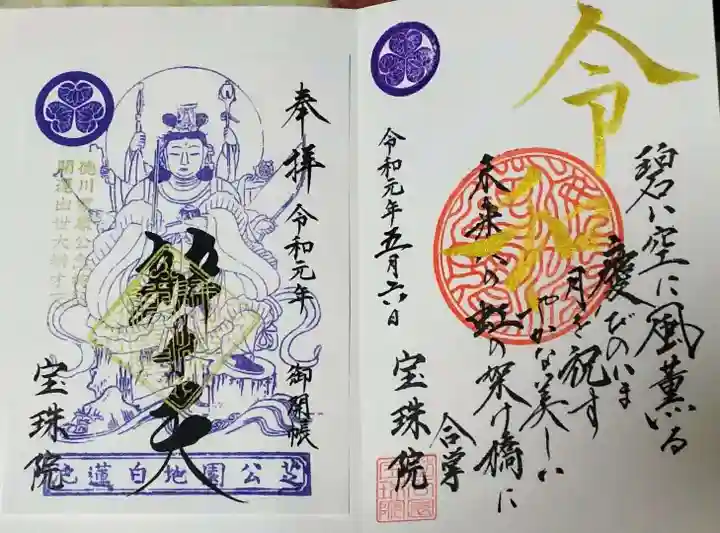 奉拝
令和元年
御開帳
辨才天
宝珠院
芝公園地白蓮池
令和
碧い空に風薫いる
慶びのいま
月を祝す
やかな美しい
未来への虹の架け橋に
合掌
令和元年五月六日
宝珠院